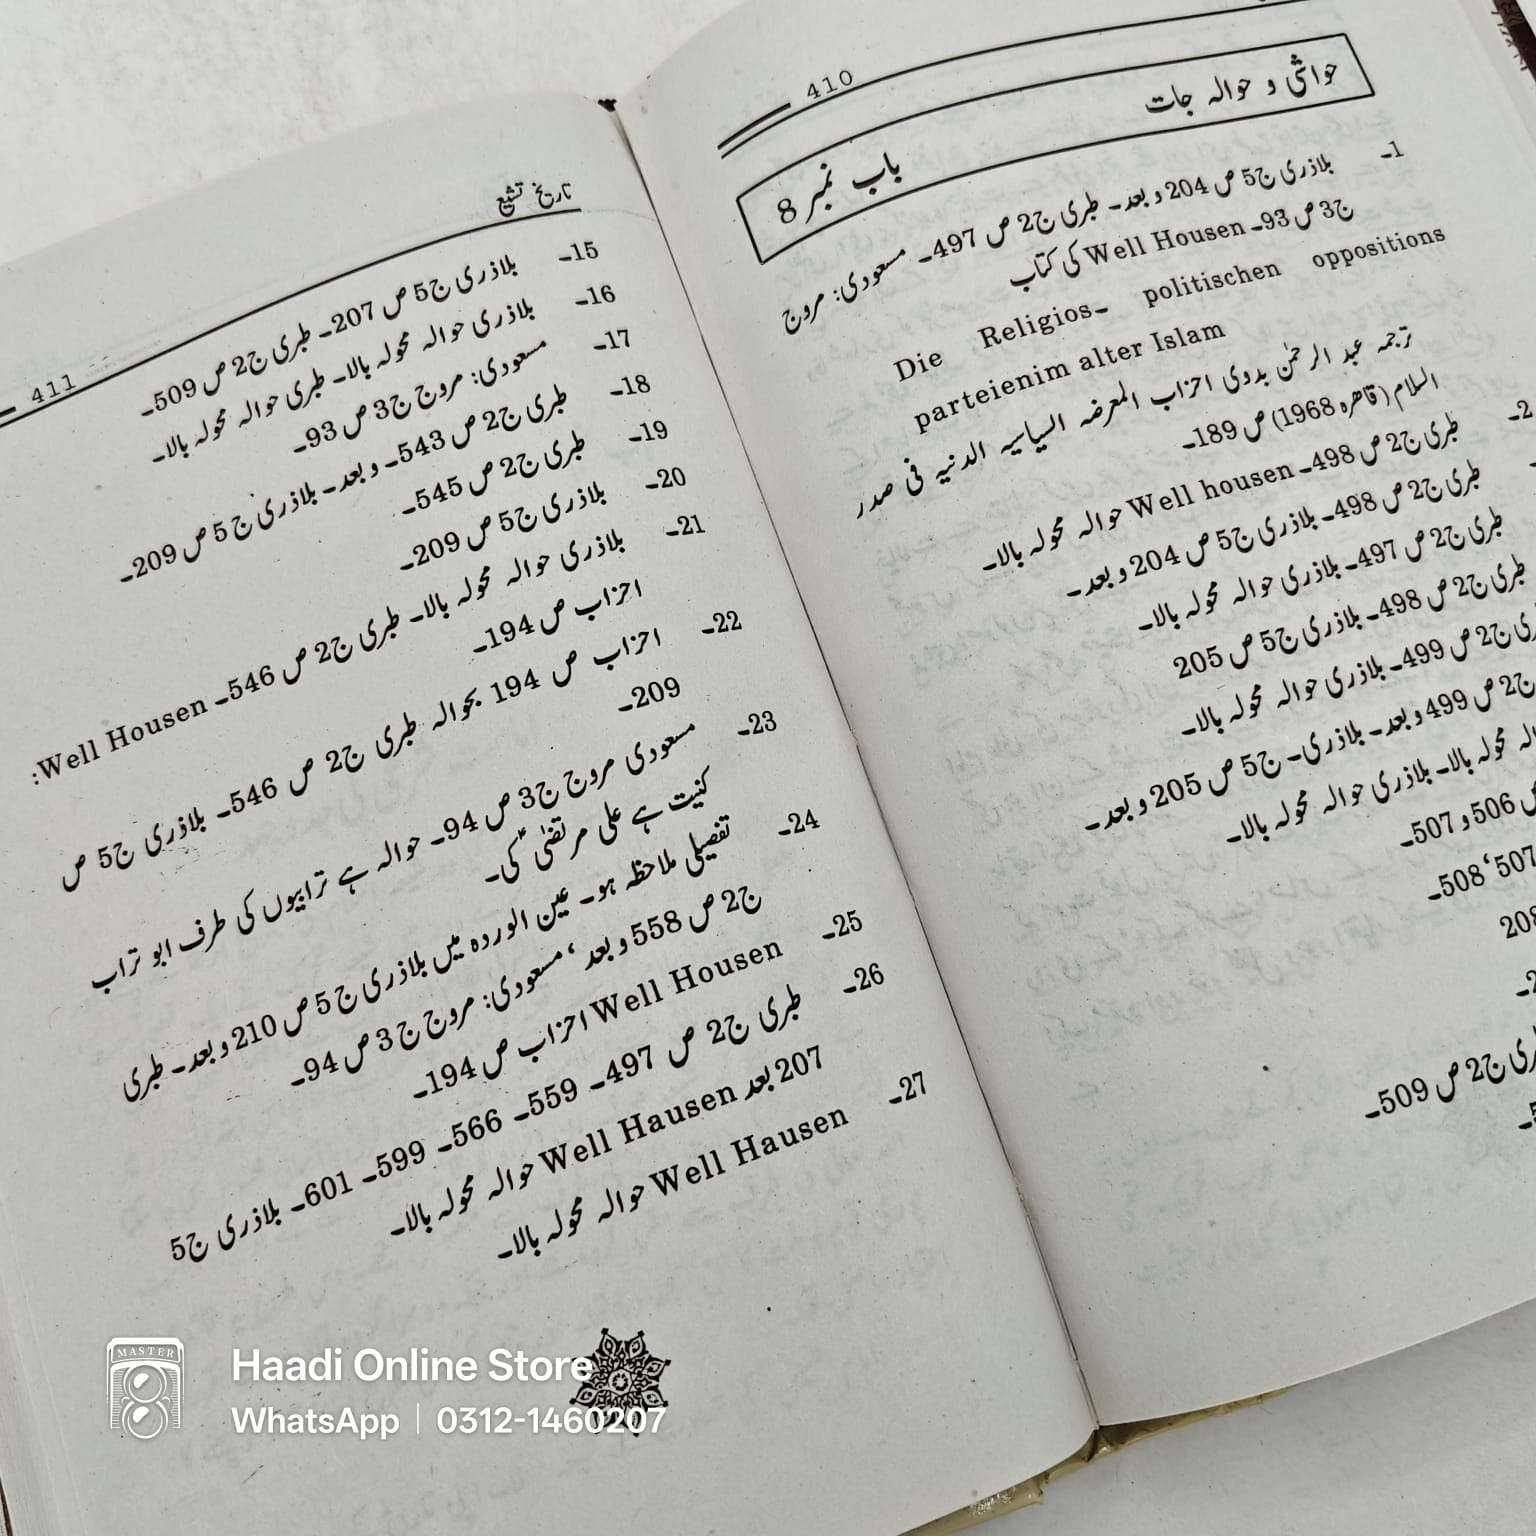 410
حواشی و حوالہ جات
باب نمبر 8
1۔ بلاذری ج5 ص 204 و بعد۔ طبری ج2 ص 497۔ مسعودی: مروج
ج3 ص 93۔ Well Housen کی کتاب
Die Religios۔ politischen oppositions
parteienim alter Islam
ترجمہ عبد الرحمٰن بدوی احزاب المعرضہ السیاسیہ الدنیہ فی صدر
السلام (قاہرہ 1968) ص 189۔
2۔ طبری ج2 ص 498۔ Well housen حوالہ محولہ بالا۔
طبری ج2 ص 498۔ بلاذری ج5 ص 204 و بعد۔
طبری ج2 ص 497۔ بلاذری حوالہ محولہ بالا۔
طبری ج2 ص 498۔ بلاذری ج5 ص 205
ج2 ص 499۔ بلاذری حوالہ محولہ بالا۔
ج2 ص 499 و بعد۔ بلاذری۔ ج5 ص 205 و بعد۔
محولہ بالا۔ بلاذری حوالہ محولہ بالا۔
ص 506 و 507۔
507، 508۔
ج2 ص 509۔
تاریخ تشیع
411
15۔ بلاذری ج5 ص 207۔ طبری ج2 ص 509۔
16۔ بلاذری حوالہ محولہ بالا۔ طبری حوالہ محولہ بالا۔
17۔ مسعودی: مروج ج3 ص 93۔
18۔ طبری ج2 ص 543۔ و بعد۔ بلاذری ج5 ص 209۔
19۔ طبری ج2 ص 545۔
20۔ بلاذری ج5 ص 209۔
21۔ بلاذری حوالہ محولہ بالا۔ طبری ج2 ص 546۔ Well Housen:
احزاب ص 194۔
22۔ احزاب ص 194 بحوالہ طبری ج2 ص 546۔ بلاذری ج5 ص
209۔
23۔ مسعودی مروج ج3 ص 94۔ حوالہ ہے ترابیوں کی طرف ابو تراب
کنیت ہے علی مرتضیٰؑ کی۔
24۔ تفصیلی ملاحظہ ہو۔ عین الوردہ میں بلاذری ج5 ص 210 و بعد۔ طبری
ج2 ص 558 و بعد، مسعودی: مروج ج3 ص 94۔
25۔ Well Housen احزاب ص 194۔
26۔ طبری ج2 ص 497۔ 559۔ 566۔ 599۔ 601۔ بلاذری ج5
207 بعد Well Hausen حوالہ محولہ بالا۔
27۔ Well Hausen حوالہ محولہ بالا۔
MASTER
Haadi Online Store
WhatsApp | 0312-1460207